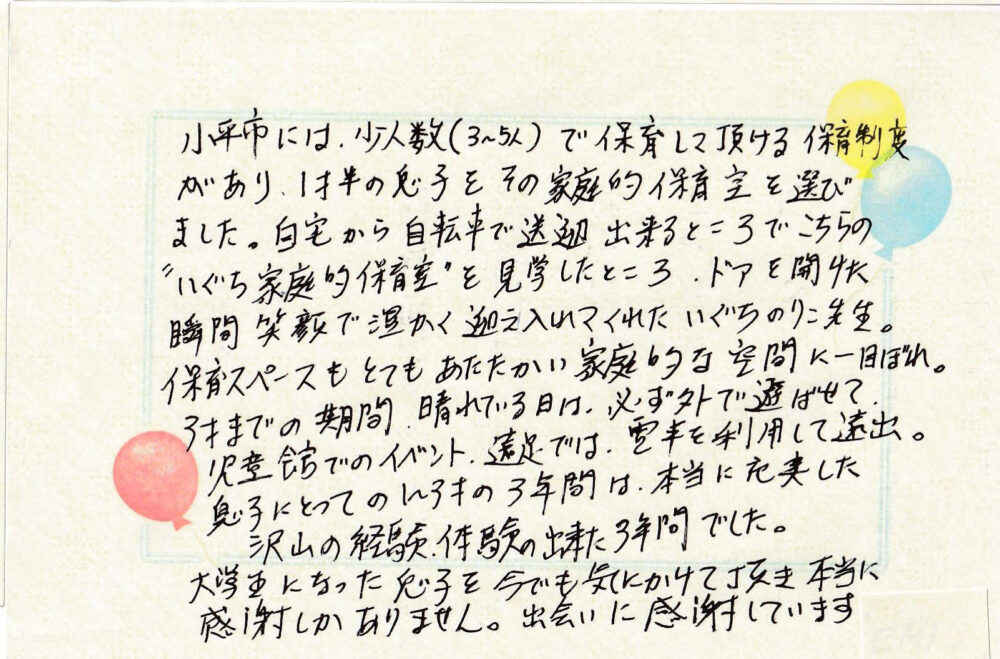 小平市には、少人数(3~5人)で保育して頂ける保育制度
があり、1才半の息子をその家庭的保育室を選び
ました。自宅から自転車で送迎出来るところでこちらの
"いぐち家庭的保育室"を見学したところ、ドアを開けた
瞬間笑顔で温かく迎え入れてくれたいぐちのりこ先生。
保育スペースもとてもあたたかい家庭的な空間に一目ぼれ。
3才までの期間、晴れている日は、必ず外で遊ばせて、
児童館でのイベント、遠足では、電車を利用して遠出。
息子にとっての1~3才の3年間は、本当に充実した
沢山の経験、体験の出来た3年間でした。
大学生になった息子を今でも気にかけて頂き本当に
感謝しかありません。出会いに感謝しています